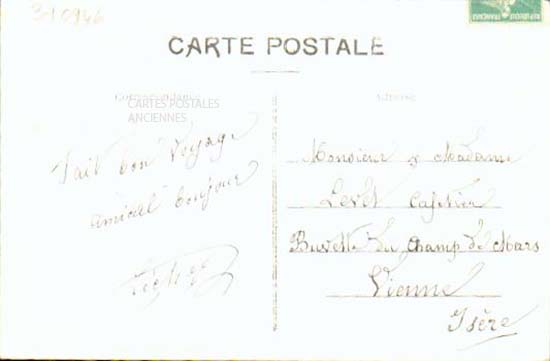 CARTE POSTALE
Correspondance
CARTES POSTALES
ANCIENNES
Adresse
Fait bon Voyage
amical bonjour
Monsieur & Madame
Levet Cafetier
Buvette du Champ de Mars
Vienne
Isère
REPUBLIQUE FRANÇAISE